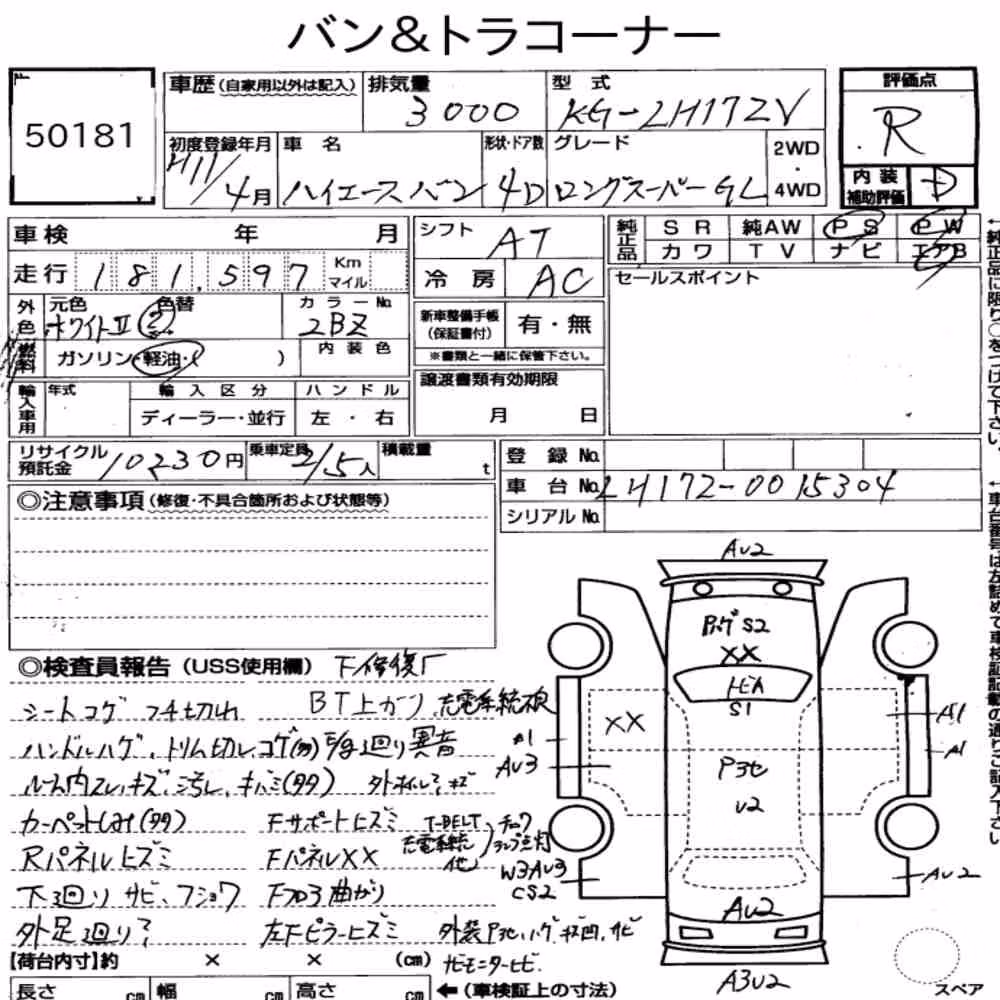 バン&トラコーナー
50181
車歴 (自家用以外は記入) 排気量 型式 評価点
3000 KG-LH172V R
初度登録年月 車名 形状・ドア数 グレード 2WD・4WD 内装補助評価
H11/4月 ハイエースバン 4D ロングスーパーGL D
車検 年 月 シフト AT 純正品 SR 純AW PS PW
カワ TV ナビ エアB
走行 181,597 Km マイル 冷房 AC セールスポイント
外色 元色 色替 カラーNo
ホワイトII 2BZ
新車整備手帳 (保証書付) 有・無
※書類と一緒に保管下さい。
燃料 ガソリン・軽油・( ) 内装色
譲渡書類有効期限
月 日
輸入車用 年式 輸入区分 ハンドル
ディーラー・並行 左・右
リサイクル預託金 10230円 乗車定員 2/5人 積載量 t
登録No
車台No LH172-0015304
シリアルNo
←純正品に限り○をつけて下さい。
←車台番号は左詰めで車検証記載の通りご記入下さい
◎注意事項 (修復・不具合箇所および状態等)
◎検査員報告 (USS使用欄) 下修復歴
シートコゲ フチ切れ BT上がり 充電系統
ハンドルハゲ、トリム切レコゲ 廻り異音
ルーム内スレ、キズ、汚レ、キバミ(多数)
カーペットしみ(多数) Fサポートヒズミ T-BELT チェックランプ点灯
Rパネルヒズミ FパネルXX 充電系統 他
下廻りサビ、フショク Fフロア曲がり
外足廻り? 左Fピラーヒズミ 外装
サビ
【荷台内寸】約 × × (cm)
長さ cm 幅 cm 高さ cm ←(車検証上の寸法)
AU2
S2
XX
トビA
S1
XX
A1
A1
A1
AU3
U2
W3AU3
CS2
AU2
AU2
A3U2
スペア